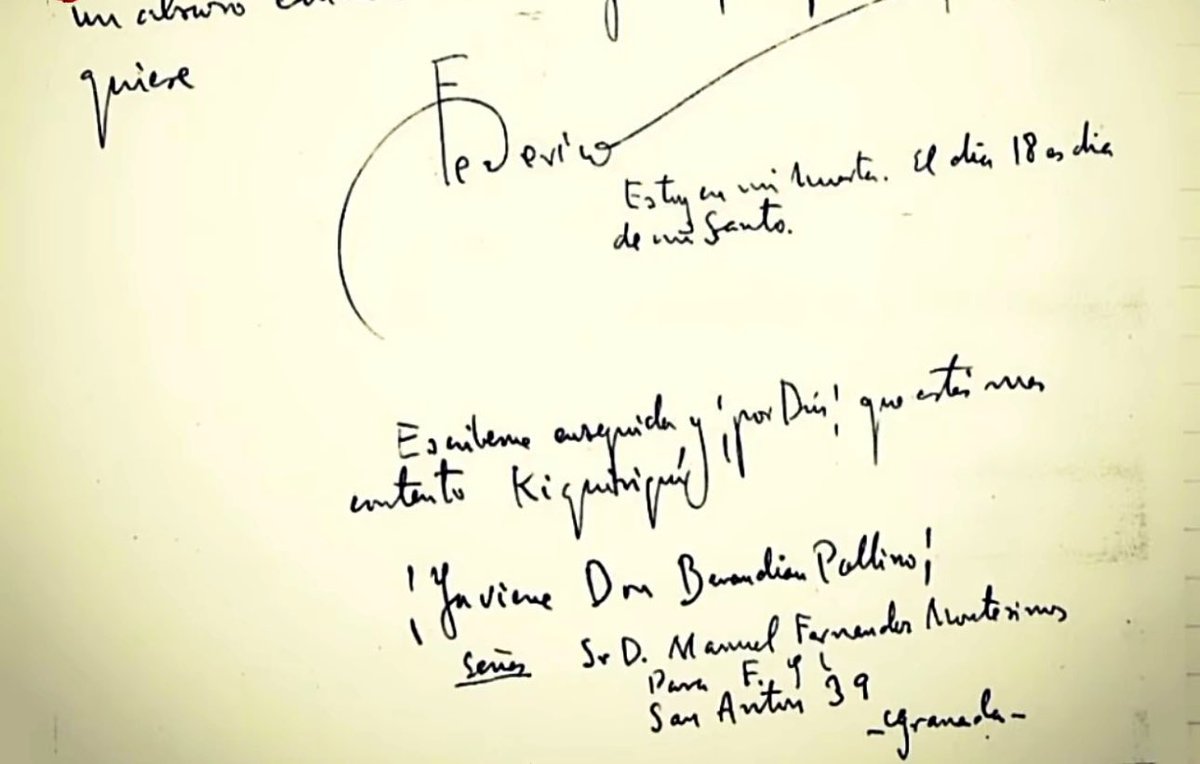 un abrazo
quiere
Federico
Estoy en mi huerta. El dia 18 es dia
de mi Santo.
Escribeme enseguida y ¡por Dios! que estés mas
contento Kiquiriquí
¡Ya viene Don Pallino!
señas Sr D. Manuel Fernandez Montesinos
Para F. G L
San Anton 39
-Granada-